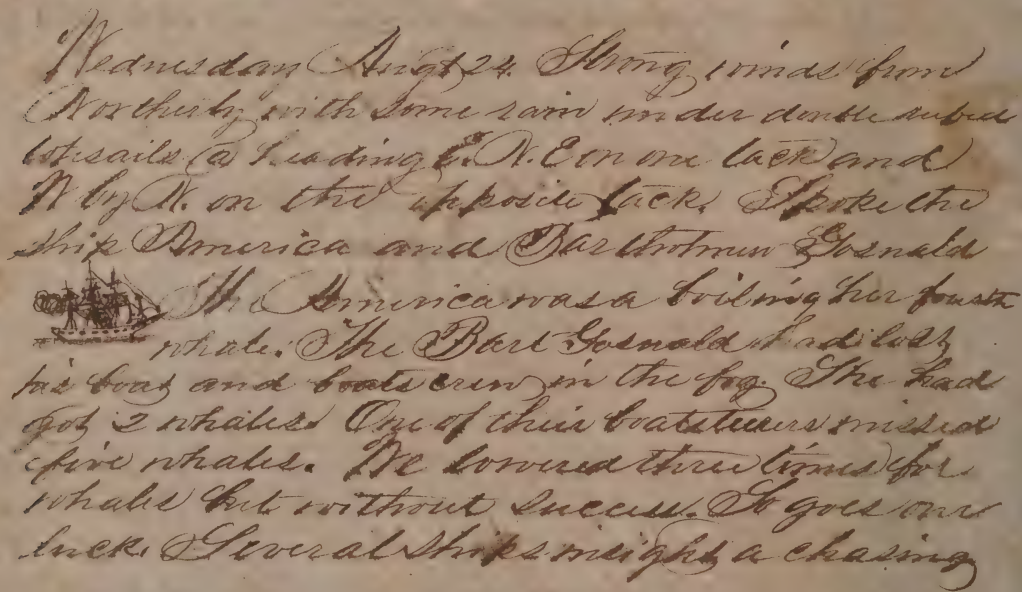 Wednesday Augt 24. Strong winds from
Northerly with some rain under double reefed
topsails a heading E.N.E on one tack and
N by W. on the opposite tack. Spoke the
ship America and Bartholmew Gosnald
The America was a boiling her fourth
whale. The Bart Gosnald had lost
his boat and boats crew in the fog. She had
got 2 whales. One of their boatsteerers missed
five whales. We lowered three times for
whales but without success. So goes our
luck. Several ships insight a chasing